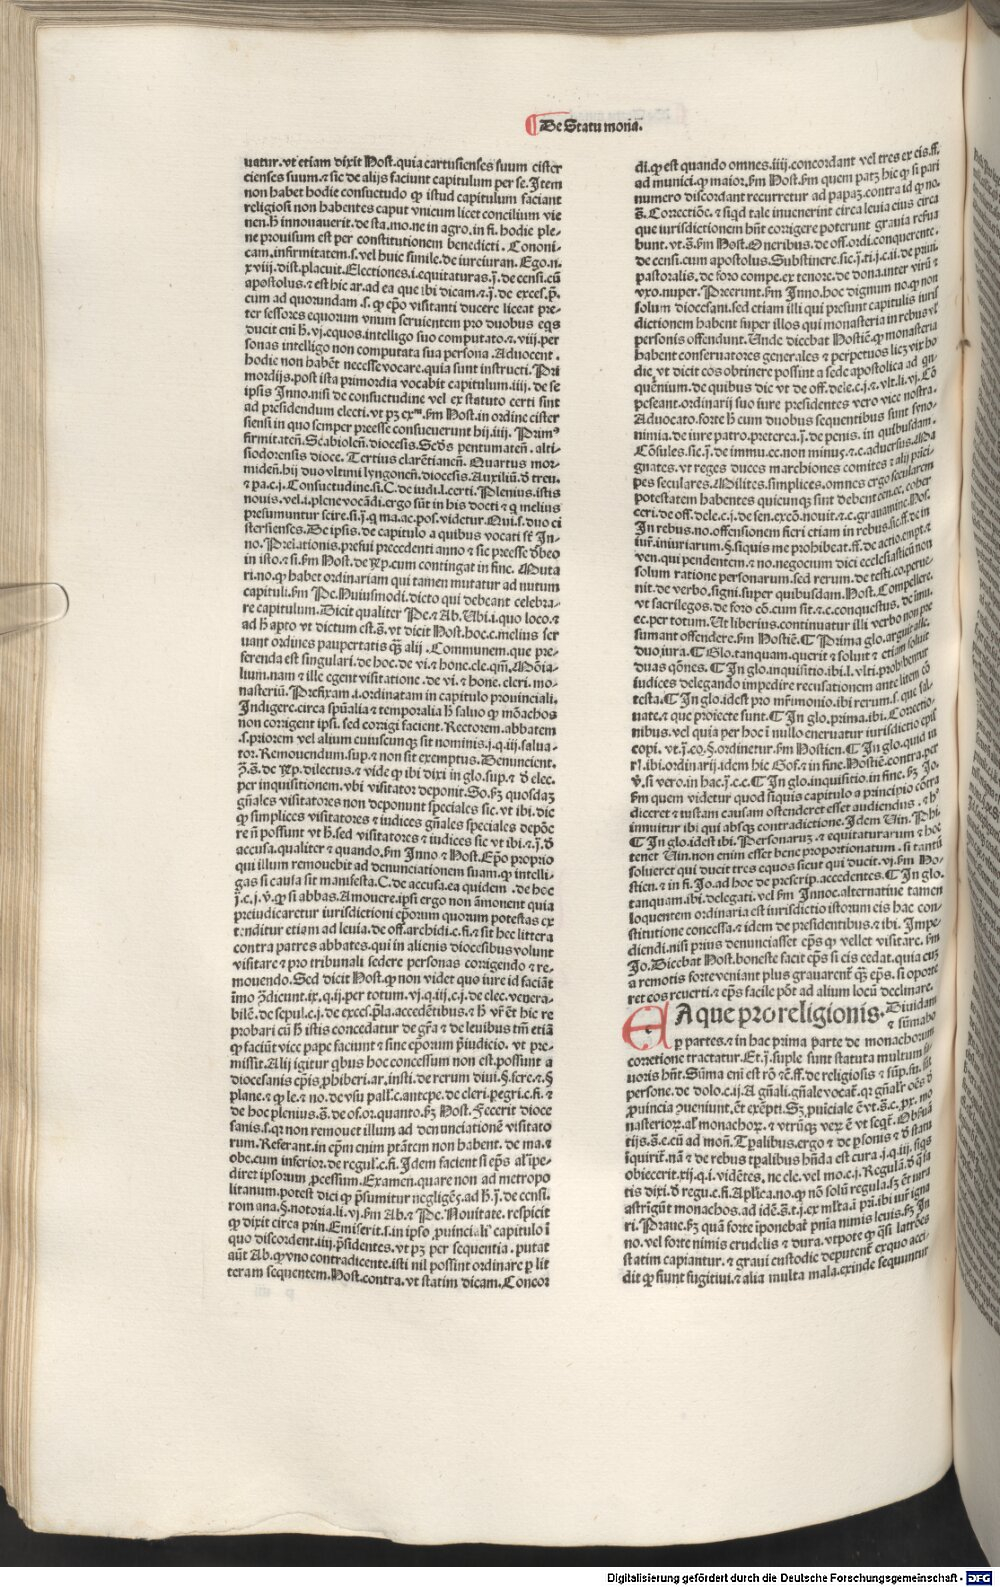 De Statu mona.
uatur. vt etiam dixit Host. quia cartusienses suum cister
cienses suum. ⁊ sic de alijs faciunt capitulum per se. Item
non habet hodie consuetudo ꝙ istud capitulum faciant
religiosi non habentes caput vnicum licet concilium vie
nen. h̄ innouauerit. de sta. mo. ne in agro. in fi. hodie ple-
ne prouisum est per constitutionem benedicti. Cononi-
cam. infirmitatem. s. vel huic simile. de iureiuran. Ego. n.
xviij. dist. placuit. Electiones. i. equitaturas. j. de censi. cū
apostolus. ⁊ est hic ar. ad ea que ibi dicam. ⁊ j. de exces. p̄.
cum ad quorundam. s. ꝙ ep̄o visitanti ducere liceat pre-
ter sessores equorum vnum seruientem pro duobus eqs
ducit eni h̄. vj. equos. intelligo suo computato. ⁊. viij. per
sonas intelligo non computata sua persona. Aduocent.
hodie non habēt necesse vocare. quia sunt instructi. Pri
mordijs. post ista primordia vocabit capitulum. iiij. de se
ipsis Inno. nisi de consuetudine vel ex statuto certi sint
ad presidendum electi. vt pꝫ exᵐ. fm Host. in ordine cister
siensi in quo semper preesse consueuerunt hij. iiij. Primꝰ
firmitateñ. Scabioleñ. diocesis. Scds pentumateñ. alti-
siodorensis dioce. Tertius clarētianeñ. Quartus mor-
mideñ. hij duo vltimi lyngoneñ. diocesis. Auxiliū. d̄ treu.
⁊ pa. c. j. Consuetudine. si. C. de iudi. l. certi. Plenius. istis
nouis. vel. i. plene vocādi. ergo sūt in his docti ⁊ q melius
presumuntur scire. si. j. q ma. ac. pos. videtur. Qui. s. duo ci
stersienses. De ipsis. de capitulo a quibus vocati sr̄ In-
no. Prelationis. presui precedenti anno ⁊ sic preesse d̄beo
in isto. ⁊ si. fm Host. de p̄p. cum contingat in fine. Muta
ri. no. ꝙ habet ordinariam qui tamen mutatur ad nutum
capituli. fm Pe. Huiusmodi. dicto qui debeant celebra-
re capitulum. Dicit qualiter Pe. ⁊ Ab. Ubi. i. quo loco. ⁊
ad h̄ apto vt dictum est. s̄. vt dicit Host. hoc. c. melius ser
uant ordines paupertatis qꝫ alij. Communem. que pre-
ferenda est singulari. de hoc. de vi. ⁊ hone. cle. qm̄. Mōia-
lium. nam ⁊ ille egent visitatione. de vi. ⁊ hone. cleri. mo-
nasteriū. Prefixam. i. ordinatam in capitulo prouinciali.
Indigere. circa spūalia ⁊ temporalia h̄ saluo ꝙ mōachos
non corrigent ipsi. sed corrigi facient. Rectorem. abbatem
. s. priorem vel alium cuiuscunqꝫ sit nominis. j. q. iij. salua-
tor. Remouendum. sup. ⁊ non sit exemptus. Denuncient.
ȝ. s̄. de p̄p. dilectus. ⁊ vide ꝙ ibi dixi in glo. sup. ⁊ d̄ elec.
per inquisitionem. vbi visitator deponit. So. bꝫ quosdaꝫ
gn̄ales visitatores non deponunt speciales sic. vt ibi. dic
ꝙ simplices visitatores ⁊ iudices gn̄ales speciales depōe
re n̄ possunt vt h̄. sed visitatores ⁊ iudices sic vt ibi. ⁊. j. d̄
accusa. qualiter ⁊ quando. fm Inno ⁊ Host. Ep̄o proprio
qui illum remouebit ad denunciationem suam. ꝙ intelli-
gas si causa sit manifesta. C. de accusa. ea quidem. de hoc
j. c. j. v̄. ꝙ si abbas. Amouere. ipsi ergo non āmouent quia
preiudicaretur iurisdictioni ep̄orum quorum potestas ex
tenditur etiam ad leuia. de off. archidi. c. fi. ⁊ sit hec littera
contra patres abbates. qui in alienis diocesibus volunt
visitare ⁊ pro tribunali sedere personas corrigendo ⁊ re-
mouendo. Sed dicit Host. ꝙ non videt quo iure id faciāt
īmo ꝯdicunt. ix. q. ij. per totum. vj. q. iij. c. j. de elec. venera-
bilē. de sepul. c. j. de exces. p̄la. accedētibus. ⁊ h̄ vr̄ ēt hic re
probari cū h̄ istis concedatur de gr̄a ⁊ de leuibus tm̄ etiā
ꝙ faciūt vice pape faciunt ⁊ sine ep̄orum p̄iudicio. vt pre-
missit. Alij igitur qbus hoc concessum non est. possunt a
diocesanis ep̄is ꝓhiberi. ar. insti. de rerum diui. §. fere. ⁊ §
plane. ⁊ ꝙ le. ⁊ no. de vsu pall'. c. antepe. de cleri. pegri. c. fi. ⁊
de hoc plenius. s̄. de of. or. quanto. bꝫ Host. Fecerit dioce
sanis. s. qr non remouet illum ad denunciationē visitato
rum. Referant. in ep̄m enim ptātem non habent. de ma. ⁊
obe. cum inferior. de regul'. c. fi. Idem facient si ep̄s al' ipe-
diret ipsorum ꝓcessum. Examen. quare non ad metropo
litanum. potest dici ꝙ p̄sumitur negligēs. ad h̄. j. de censi.
romana. §. notoria. li. vj. fm Ab. ⁊ Pe. Nouitate. respicit
ꝙ dixit circa prin. Emiserit. s. in ipso ꝓuinciali capitulo ī
quo discordent. iiij. p̄sidentes. vt pꝫ per sequentia. putat
aūt Ab. ꝙ vno contradicente. isti nil possunt ordinare ꝑ lit
teram sequentem. Host. contra. vt statim dicam. Concor
di. ꝙ est quando omnes. iiij. concordant vel tres ex eis. ff.
ad munici. ꝙ maior. fm Host. fm quem patꝫ hic ꝙ si pari
numero discordant recurretur ad papaꝫ. contra id ꝙ no.
s̄. Correctiōe. ⁊ siqd tale inuenerint circa leuia eius circa
que iurisdictionem hn̄t corrigere poterunt grauia refua
bunt. vt. s̄. fm Host. Oneribus. de off. ordi. conquerente.
de censi. cum apostolus. Substinere. sic. j. ti. j. c. ij. de priui.
pastoralis. de foro compe. ex tenore. de dona. inter virū ⁊
vxo. nuper. Preerunt. fm Inno. hoc dignum no. ꝙ non
solum diocesani. sed etiam illi qui presunt capitulis iuris
dictionem habent super illos qui monasteria in rebus vl'
personis offendunt. Unde dicebat Hostiē. ꝙ monasteria
habent conseruatores generales ⁊ perpetuos licꝫ vix ho
die. vt dicit eos obtinere possint a sede apostolica ad qn
quēnium. de quibus dic vt de off. dele. c. j. ⁊. vlt. li. vj. Cō
peseant. ordinarij suo iure presidentes vero vice nostra.
Aduocato. forte h̄ cum duobus sequentibus sunt syno-
nimia. de iure patro. preterea. j. de penis. in quibusdam.
Cōsules. sic. j. de immu. ec. non minꝰ. ⁊. c. aduersus. Ma
gnates. vt reges duces marchiones comites ⁊ alij prici-
pes seculares. Milites. simplices. omnes ergo secularem
potestatem habentes quicunqꝫ sint debent cen. ec. coher
ceri. de off. dele. c. j. de sen. excō. nouit. ⁊ c. grauamine. Pos.
In rebus. no. offensionem fieri etiam in rebus. sic. ff. de in
iur̄. iniuriarum. §. siquis me prohibeat. ff. de actio. empt. ⁊
ven. qui pendentem. ⁊ no. negocium dici ecclesiasticū non
solum ratione personarum. sed rerum. de testi. co. perue-
nit. de verbo. signi. super quibusdam. Host. Compellere.
vt sacrilegos. de foro cō. cum sit. ⁊ c. conquestus. de imu.
ec. per totum. Ut liberius. continuatur illi verbo non pre
sumant offendere. fm Hostiē. ¶ Prima glo. arguit alle.
duo. iura. ¶ Glo. tanquam. querit ⁊ soluit ⁊ etiam soluit
duas qōnes. ¶ In glo. inquisitio. ibi. l. vlti. prohibentur
iudices delegando impedire recusationem ante litem cō
testa. ¶ In glo. idest pro mr̄imonio. ibi rerum. s. que sal-
uate. ⁊ que proiecte sunt. ¶ In glo. prima. ibi. Correctio-
nibus. vel quia per hoc ī nullo eneruatur iurisdictio epis
copi. vt. j. eo. §. ordinetur. fm Hostien. ¶ In glo. quid in
rl'. ibi. ordinarij. idem hic Gof. ⁊ in fine. Hostiē. contra. per
v̄. si vero. in hac. j. e. c. ¶ In glo. inquisitio. in fine. bꝫ Jo.
fm quem videtur quod siquis capitulo a principio cōtra
diceret ⁊ iustam causam ostenderet esset audiendus. ⁊ hᵒ
innuitur ibi qui absqꝫ contradictione. Idem Uin. Phi.
¶ In glo. idest ibi. Personarum. ⁊ equitaturarum ⁊ hoc
tenet Uin. non enim esset bene proportionatum. si tantū
solueret qui ducit tres equos sicut qui ducit. vj. fm Ho-
stien. ⁊ in fi. Jo. ad hoc de prescrip. accedentes. ¶ In glo.
tanquam. ibi. delegati. vel fm Innoc. alternatiue tamen
loquentem ordinaria est iurisdictio istorum eis hac con-
stitutione concessa. ⁊ idem de presidentibus. ⁊ ibi. Impe-
diendi. nisi prius denunciasset ep̄s ꝙ vellet visitare. fm
Jo. Dicebat Host. honeste facit ep̄s si eis cedat. quia cuꝫ
a remotis forte veniant plus grauarent' qꝫ ep̄s. si oporte
ret eos reuerti. ⁊ ep̄s facile pōt ad alium locū declinare.
EA que pro religionis. Diuidam
⁊ sūmabo
ꝑ partes. ⁊ in hac prima parte de monachorum
correctione tractatur. Et. j. suple sunt statuta multum
uoris hn̄t. Sūma eni est rō ⁊ē. ff. de religiosis ⁊ sūp. fu. sūt
persone. de dolo. c. ij. A gn̄ali. gn̄ale vocat'. qr gn̄alr oēs d̄
ꝓuincia ꝯueniunt. ēt exēpti. Sꝫ puīciale ēvt. s̄. c. pr̄. mo
nasterioꝝ. al' monachoꝝ. ⁊ vtrūqꝫ veꝝ ē vt seqt'. Obsuā
tijs. s̄. e. cū ad mon̄. Tp̄alibus. ergo ⁊ de psonis ⁊ d̄ statu
īquirit'. nā ⁊ de rebus tp̄alibus hn̄da est cura. j. q. iij. siqs
obiecerit. xij. q. i. vidētes. ne cle. vel mo. c. j. Regulā. d̄ q̄ sa
tis dixi. d̄ regu. c. fi. Aplica. no. ꝙ nō solū regula. sꝫ ēt iura
astrīgūt monachos. ad idē. s̄. t. j. ex mlta. ā pri. ibi iur̄ igna
ri. Praue. bꝫ quā forte iponebat' pnīa nimis leuis. bꝫ In
no. vel forte nimis crudelis ⁊ dura. vtpote ꝙ q̄si latrōes
statim capiantur. ⁊ graui custodie deputent' ex quo acci-
dit ꝙ fiunt fugitiui. ⁊ alia multa mala. exinde sequuntur
Digitalisierung gefördert durch die Deutsche Forschungsgemeinschaft - DFG